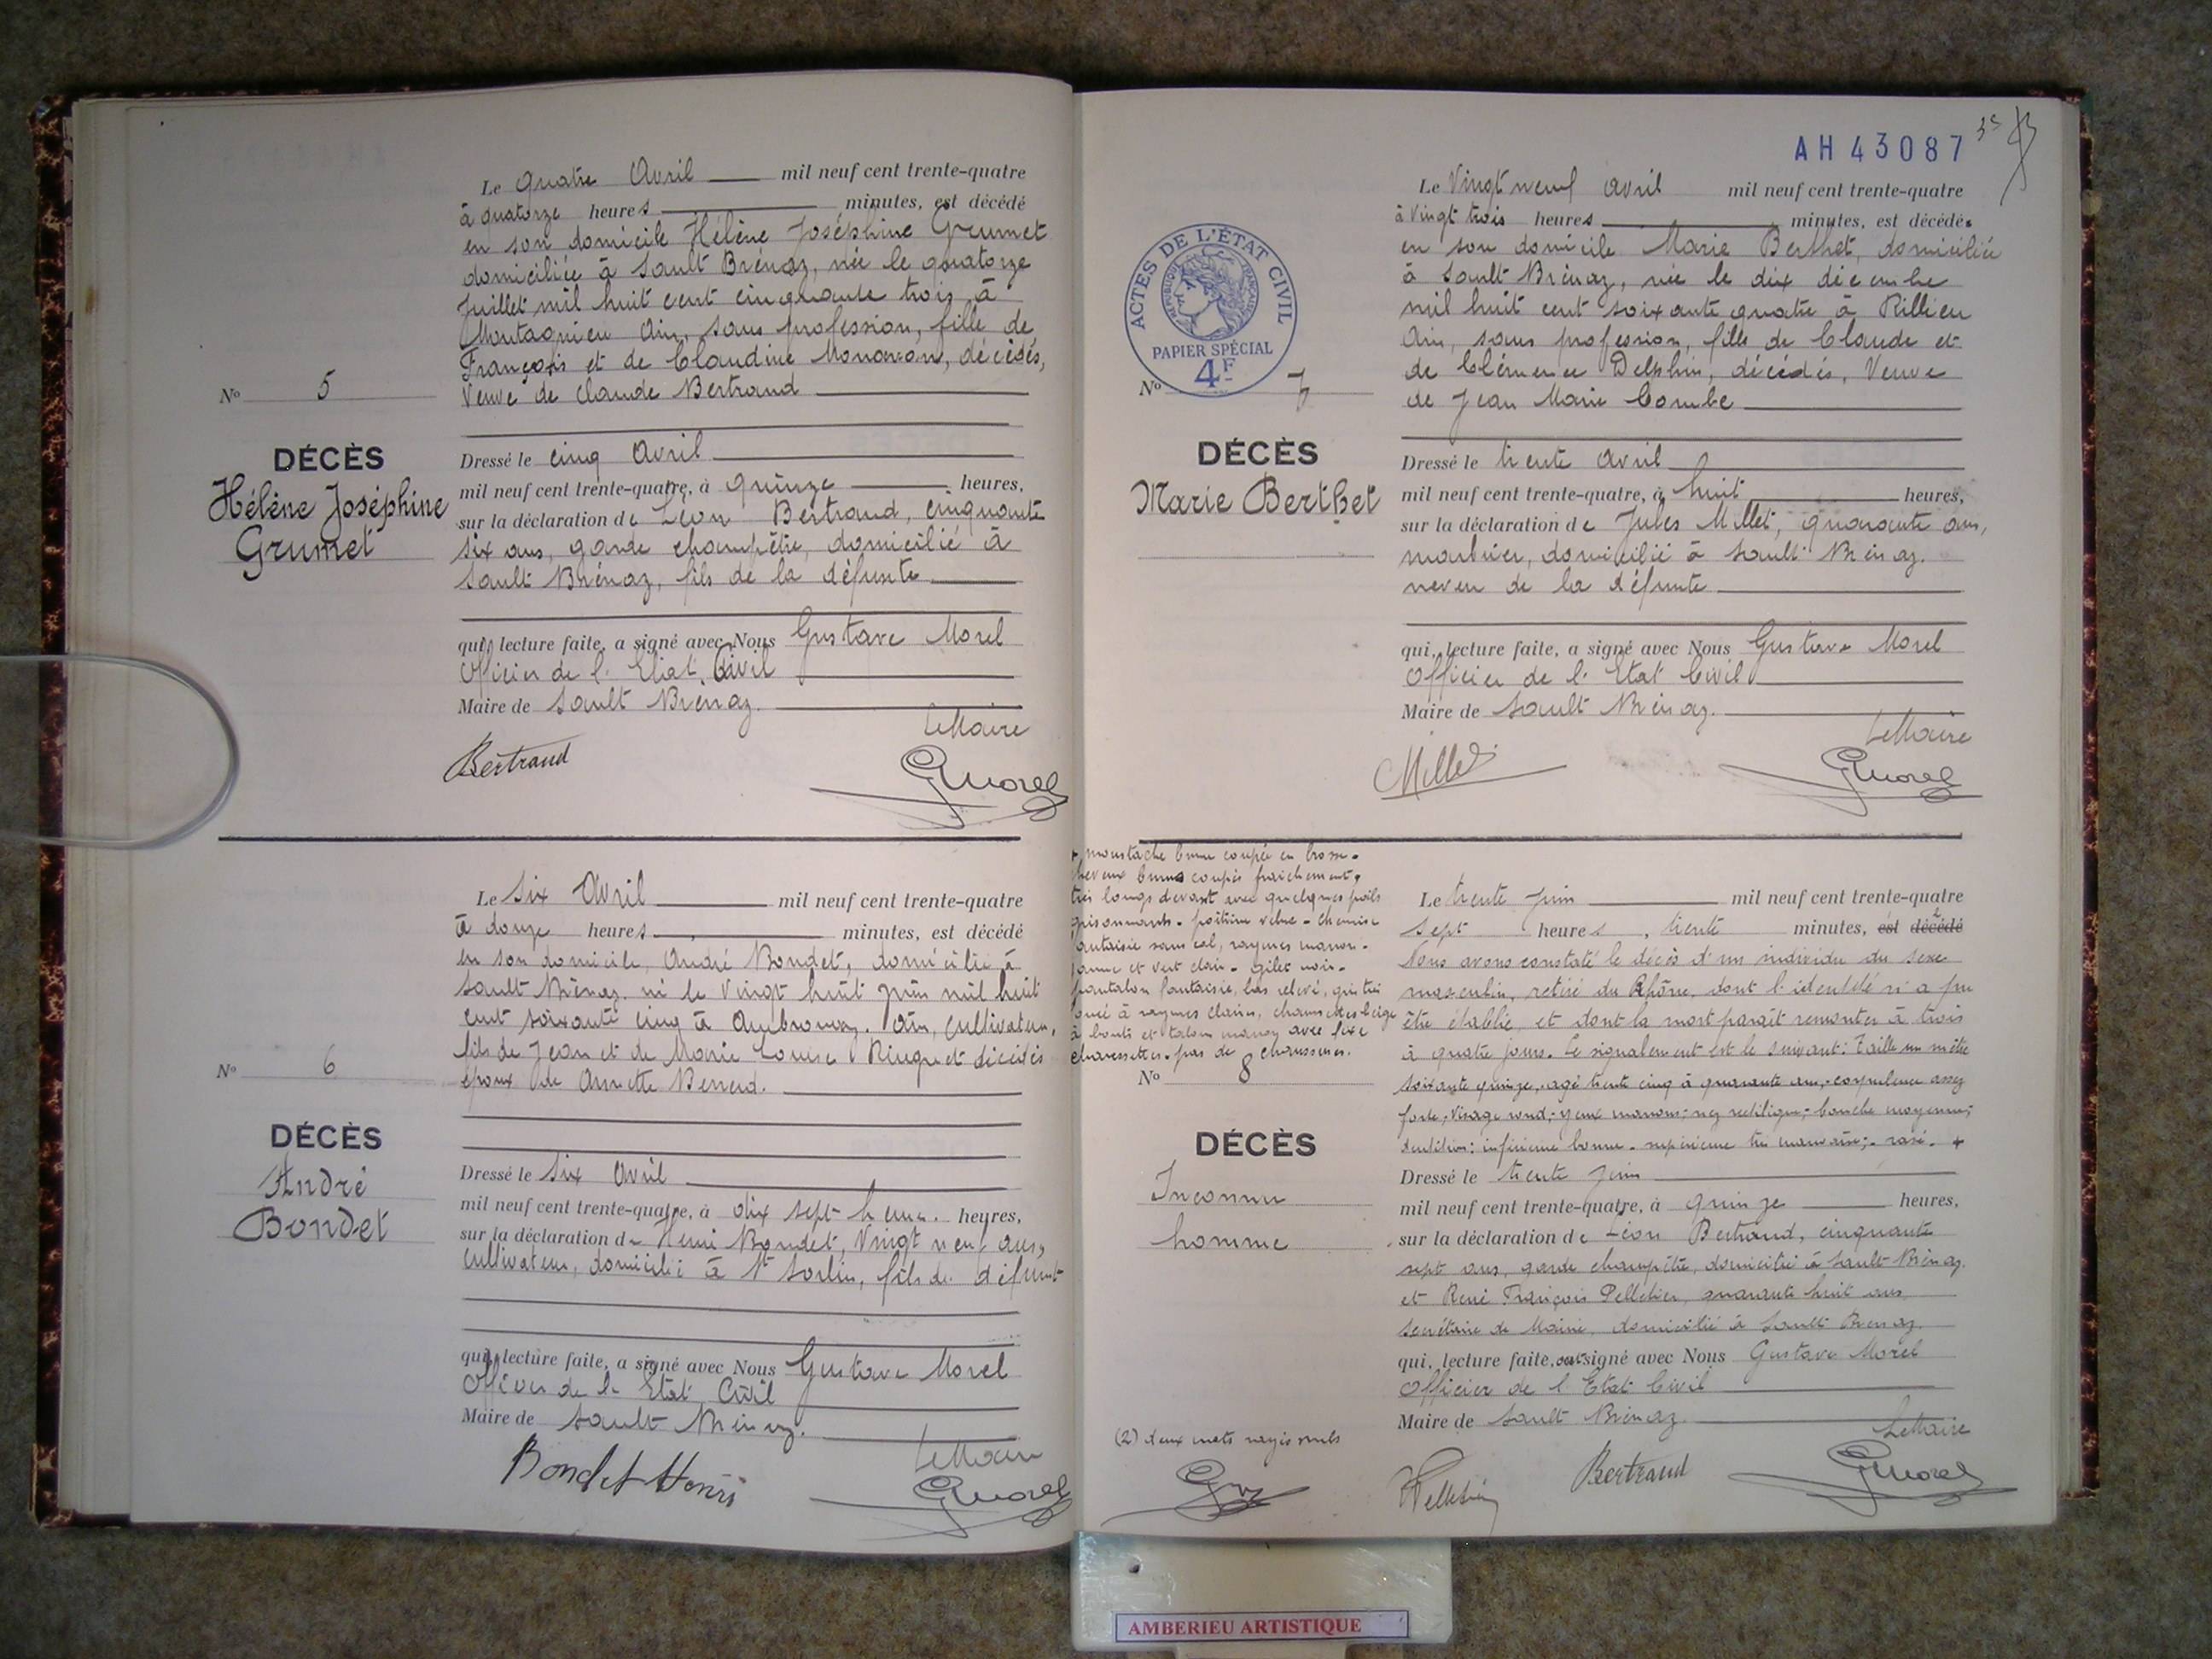 Le quatre Avril mil neuf cent trente-quatre
à quatorze heures minutes, est décédé
en son domicile Hélène Joséphine Grumet
domiciliée à Sault Brénaz, née le quatorze
Juillet mil huit cent cinquante trois à
Montagnieu Ain, sans profession, fille de
François et de Claudine, décédés,
Veuve de Claude Bertrand
No 5
DÉCÈS
Hélène Joséphine
Grumet
Dressé le cinq Avril
mil neuf cent trente-quatre, à quinze heures,
sur la déclaration de Léon Bertrand, cinquante
six ans, garde champêtre, domicilié à
Sault Brénaz, fils de la défunte
qui, lecture faite, a signé avec Nous Gustave Morel
Officier de l'Etat Civil
Maire de Sault Brénaz.
Le Maire
Bertrand
GMorel
Le six Avril mil neuf cent trente-quatre
à douze heures minutes, est décédé
en son domicile, André Bondet, domicilié à
Sault Brénaz. né le vingt huit juin mil huit
cent soixante cinq à Ambronay. Ain, cultivateur,
fils de Jean et de Marie Louise décédés
époux de Annette
No 6
DÉCÈS
André
Bondet
Dressé le six Avril
mil neuf cent trente-quatre, à dix sept heures. heures,
sur la déclaration de Henri Bondet, vingt neuf ans,
cultivateur, domicilié à St Sorlin, fils du défunt
qui, lecture faite, a signé avec Nous Gustave Morel
Officier de l'Etat Civil
Maire de Sault Brénaz.
Le Maire
Bondet Henri
GMorel
AH 43087
Le Vingt neuf Avril mil neuf cent trente-quatre
à vingt trois heures minutes, est décédée
en son domicile Marie Berthet, domiciliée
à Sault Brénaz, née le dix décembre
mil huit cent soixante quatre à Rillieu
Ain, sans profession, fille de Claude et
de Clémence Delphin, décédés, Veuve
de Jean Marie Combe
ACTES DE L'ÉTAT CIVIL
RÉPUBLIQUE FRANÇAISE
PAPIER SPÉCIAL
4F
No 7
DÉCÈS
Marie Berthet
Dressé le trente Avril
mil neuf cent trente-quatre, à huit heures,
sur la déclaration de Jules Millet, quarante ans,
marbrier, domicilié à Sault Brénaz.
neveu de la défunte
qui, lecture faite, a signé avec Nous Gustave Morel
Officier de l'Etat Civil
Maire de Sault Brénaz.
Le Maire
Millet
GMorel
+ moustache brune coupée en brosse -
cheveux bruns coupés fraîchement,
très longs devant avec quelques poils
grisonnants - poitrine velue - chemise
fantaisie sans col, rayures marron -
jaune et vert clair - gilet noir -
pantalon fantaisie, bas relevé, gris
à rayures claires, chaussettes beige
à bouts et talons marron avec fixe
chaussettes - pas de chaussures.
No 8
DÉCÈS
Inconnu
homme
Le trente Juin mil neuf cent trente-quatre
sept heures, trente minutes, est décédé
Nous avons constaté le décès d'un individu du sexe
masculin, retiré du Rhône, dont l'identité n'a pu
être établie, et dont la mort paraît remonter à trois
à quatre jours. Le signalement est le suivant: Taille un mètre
soixante quinze, - agé trente cinq à quarante ans, - corpulence assez
forte, visage rond; - yeux marrons; - nez rectiligne; - bouche moyenne;
dentition: inférieure bonne - supérieure très mauvaise; - rasé - +
Dressé le trente juin
mil neuf cent trente-quatre, à quinze heures,
sur la déclaration de Léon Bertrand, cinquante
sept ans, garde champêtre, domicilié à Sault Brénaz.
et René François Pelletier, quarante huit ans
secrétaire de Mairie, domicilié à Sault Brénaz.
qui, lecture faite, ont signé avec Nous Gustave Morel
Officier de l'Etat Civil
Maire de Sault Brénaz.
Le Maire
(2) deux mots rayés nuls
Pelletier
Bertrand
GMorel
AMBERIEU ARTISTIQUE